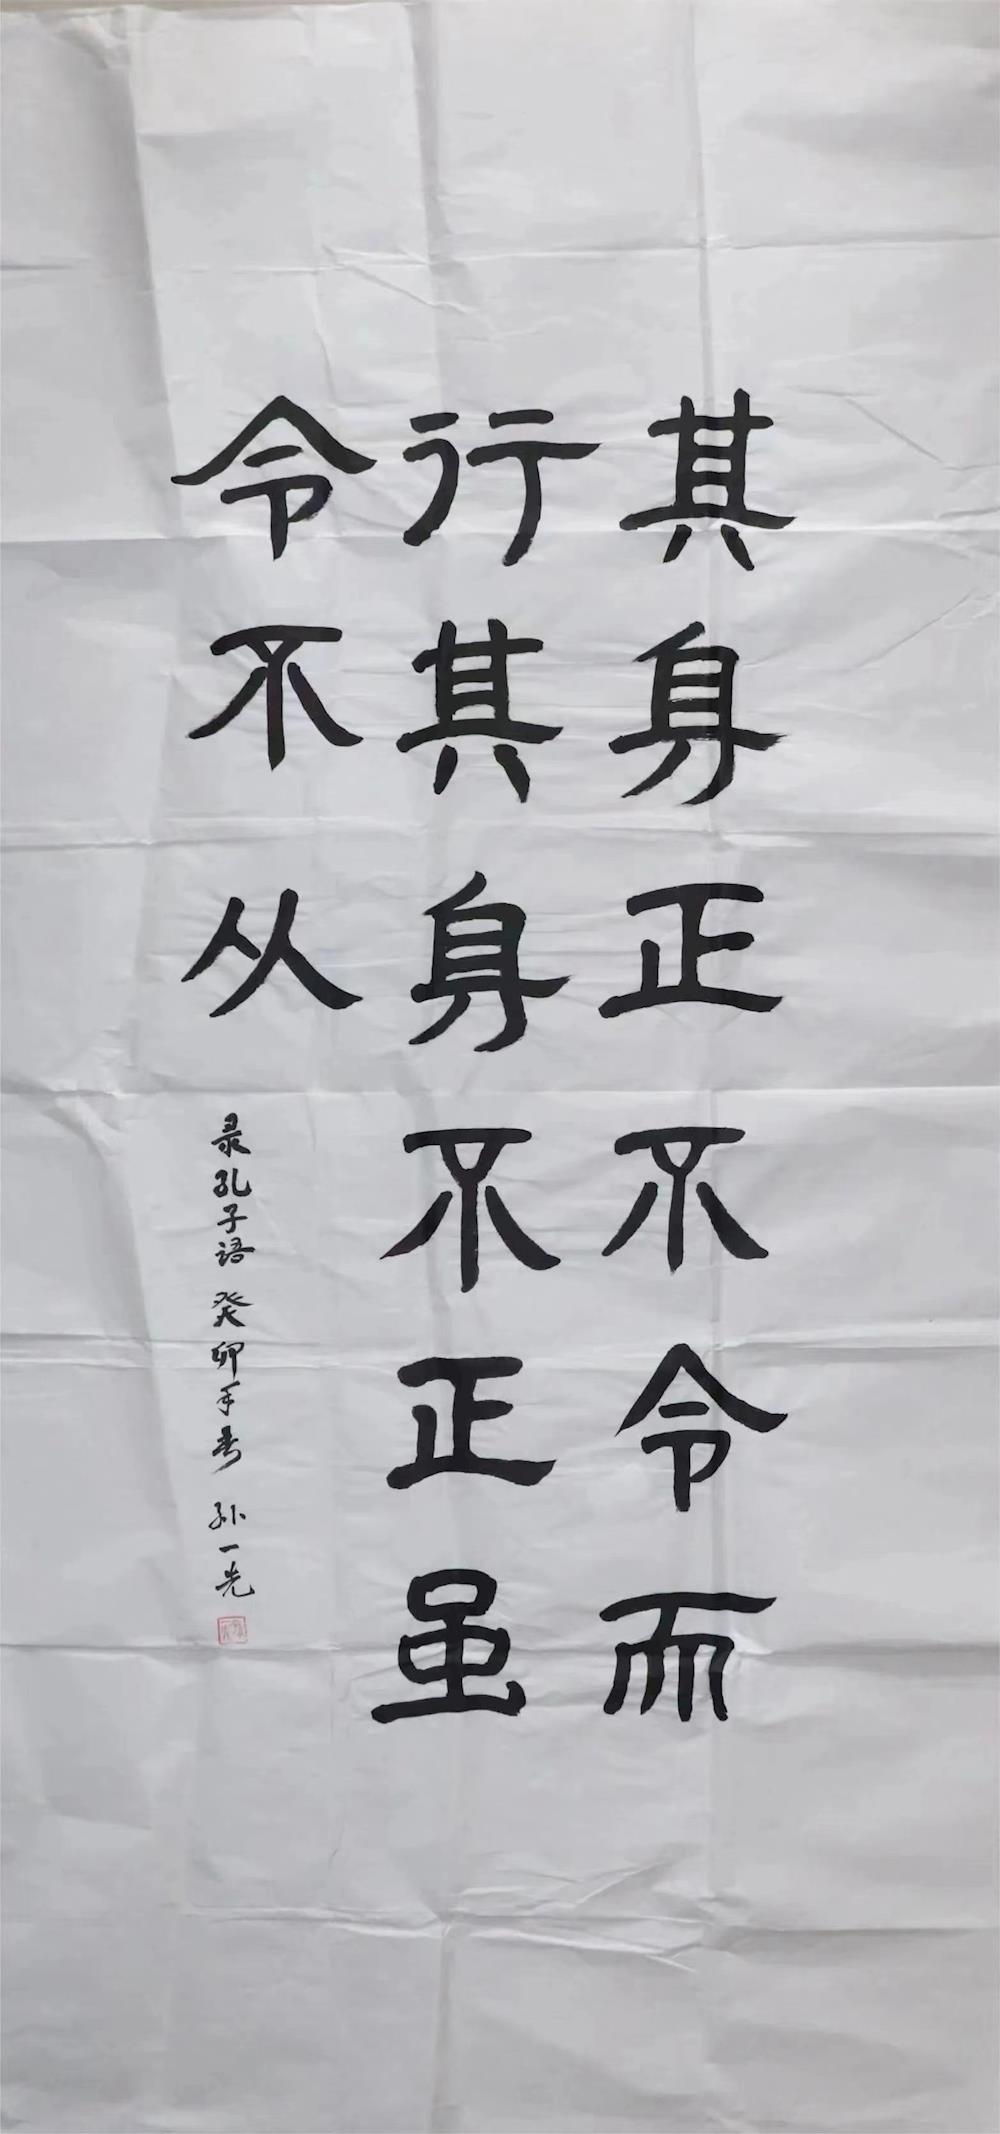 其身正不令而
行其身不正虽
令不从
录孔子语 癸卯年春 孙一光